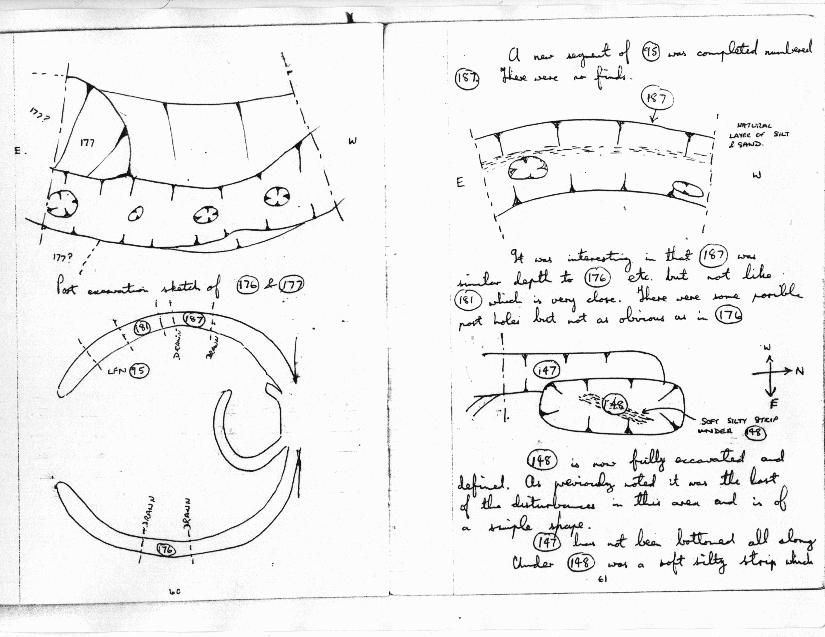 177?
177
E.
W
177?
Post excavation sketch of 176 & 177
181
187
DRAWN
DRAWN
LFN 95
DRAWN
DRAWN
176
60
A new segment of 95 was completed numbered
187. There were no finds.
187
NATURAL
LAYER OF SILT
& SAND.
E
W
It was interesting in that 187 was
similar depth to 176 etc. but not like
181 which is very close. There were some possible
post holes but not as obvious as in 176
147
148
W
N
E
SOFT SILTY STRIP
UNDER 148
148 is now fully excavated and
defined. As previously noted it was the last
of the disturbances in this area and is of
a simple shape.
147 has not been bottomed all along
Under 148 was a soft silty strip which
61